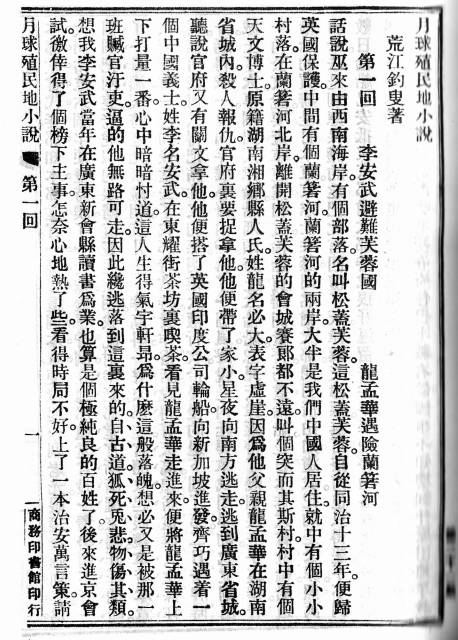 月球殖民地小說
荒江釣叟著
第一回　李安武避難芙蓉國　龍孟華遇險蘭箬河
話說巫來由西南海岸。有個部落名叫松蓋芙蓉。這松蓋芙蓉。自從同治十三年。便歸
英國保護。中間有個蘭箬河。蘭箬河的兩岸。大半是我們中國人居住。就中有個小小
村落。在蘭箬河北岸。離開松蓋芙蓉的會城賽郎都不遠。叫個突而其斯村。村中有個
天文博士。原籍湖南湘鄉縣人氏。姓龍名必大。表字虛崖。因爲他父親龍孟華。在湖南
省城內。殺人報仇。官府裏要捉拿他。他便帶了家小。星夜向南方逃走。逃到廣東省城。
聽說官府又有關文拿他。他便搭了英國印度公司輪船。向新加坡進發。齊巧遇着一
個中國義士。姓李名安武。在東耀街茶坊裏喫茶。看見龍孟華走進來。便將龍孟華上
下打量一番。心中暗暗忖道。這人生得氣宇軒昂。爲什麼這般落魄。想必又是被那一
班贓官汙吏。逼的他無路可走。因此纔逃落到這裏來的。自古道。狐死兎悲。物傷其類。
想我李安武當年在廣東新會縣讀書爲業。也算是個極純良的百姓了。後來進京會
試。徼倖得了個榜下主事。怎奈心地熱了些。看得時局不好。上了一本治安萬言策。請
月球殖民地小說　第一回　一　商務印書館印行